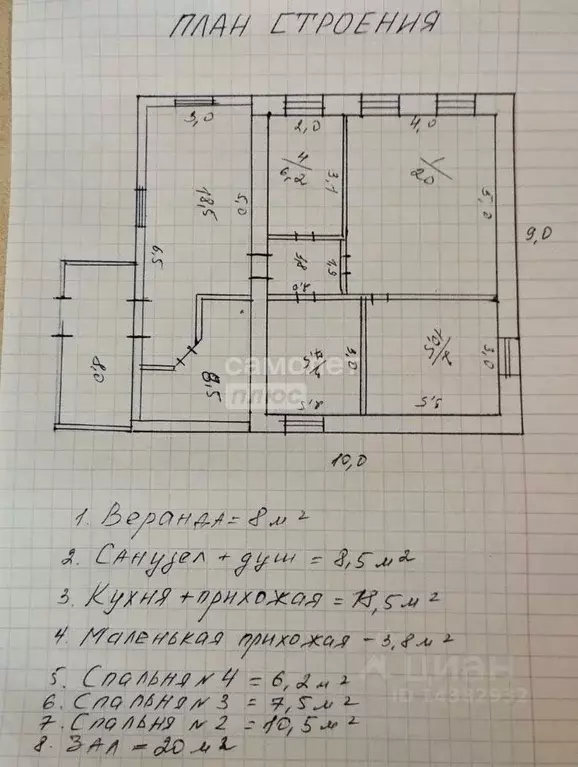 ПЛАН СТРОЕНИЯ
3,0
2,0
4,0
4/6,2
3,1
1/20
5,0
18,5
5,0
6,5
9,0
3,8
1,9
2,0
8,0
8,5
3,0
3,0
2,5
3,5
10,0
самолет
плюс
1. ВЕРАНДА = 8 м²
2. САНУЗЕЛ + ДУШ = 8,5 м²
3. КУХНЯ + ПРИХОЖАЯ = 18,5 м²
4. МАЛЕНЬКАЯ ПРИХОЖАЯ - 3,8 м²
5. СПАЛЬНЯ N 4 = 6,2 м²
6. СПАЛЬНЯ N 3 = 7,5 м²
7. СПАЛЬНЯ N 2 = 10,5 м²
8. ЗАЛ = 20 м²
циан